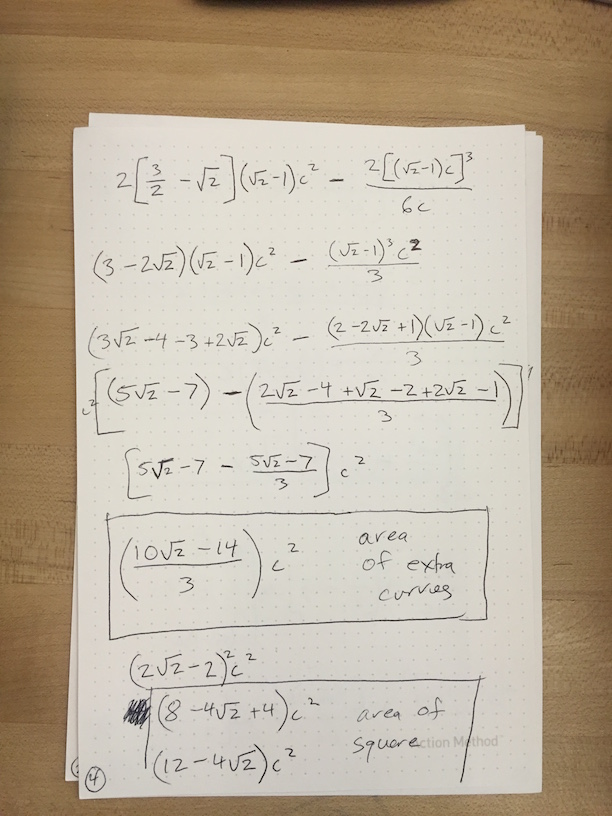 2[3/2 - √2](√2-1)c² - 2[(√2-1)c]³/6c
(3-2√2)(√2-1)c² - (√2-1)³c²/3
(3√2-4-3+2√2)c² - (2-2√2+1)(√2-1)c²/3
c²[(5√2-7) - (2√2-4+√2-2+2√2-1/3)]
[5√2-7 - 5√2-7/3]c²
(10√2-14/3)c² area
of extra
curves
(2√2-2)²c²
(8-4√2+4)c² area of
(12-4√2)c² square
ction Method
4